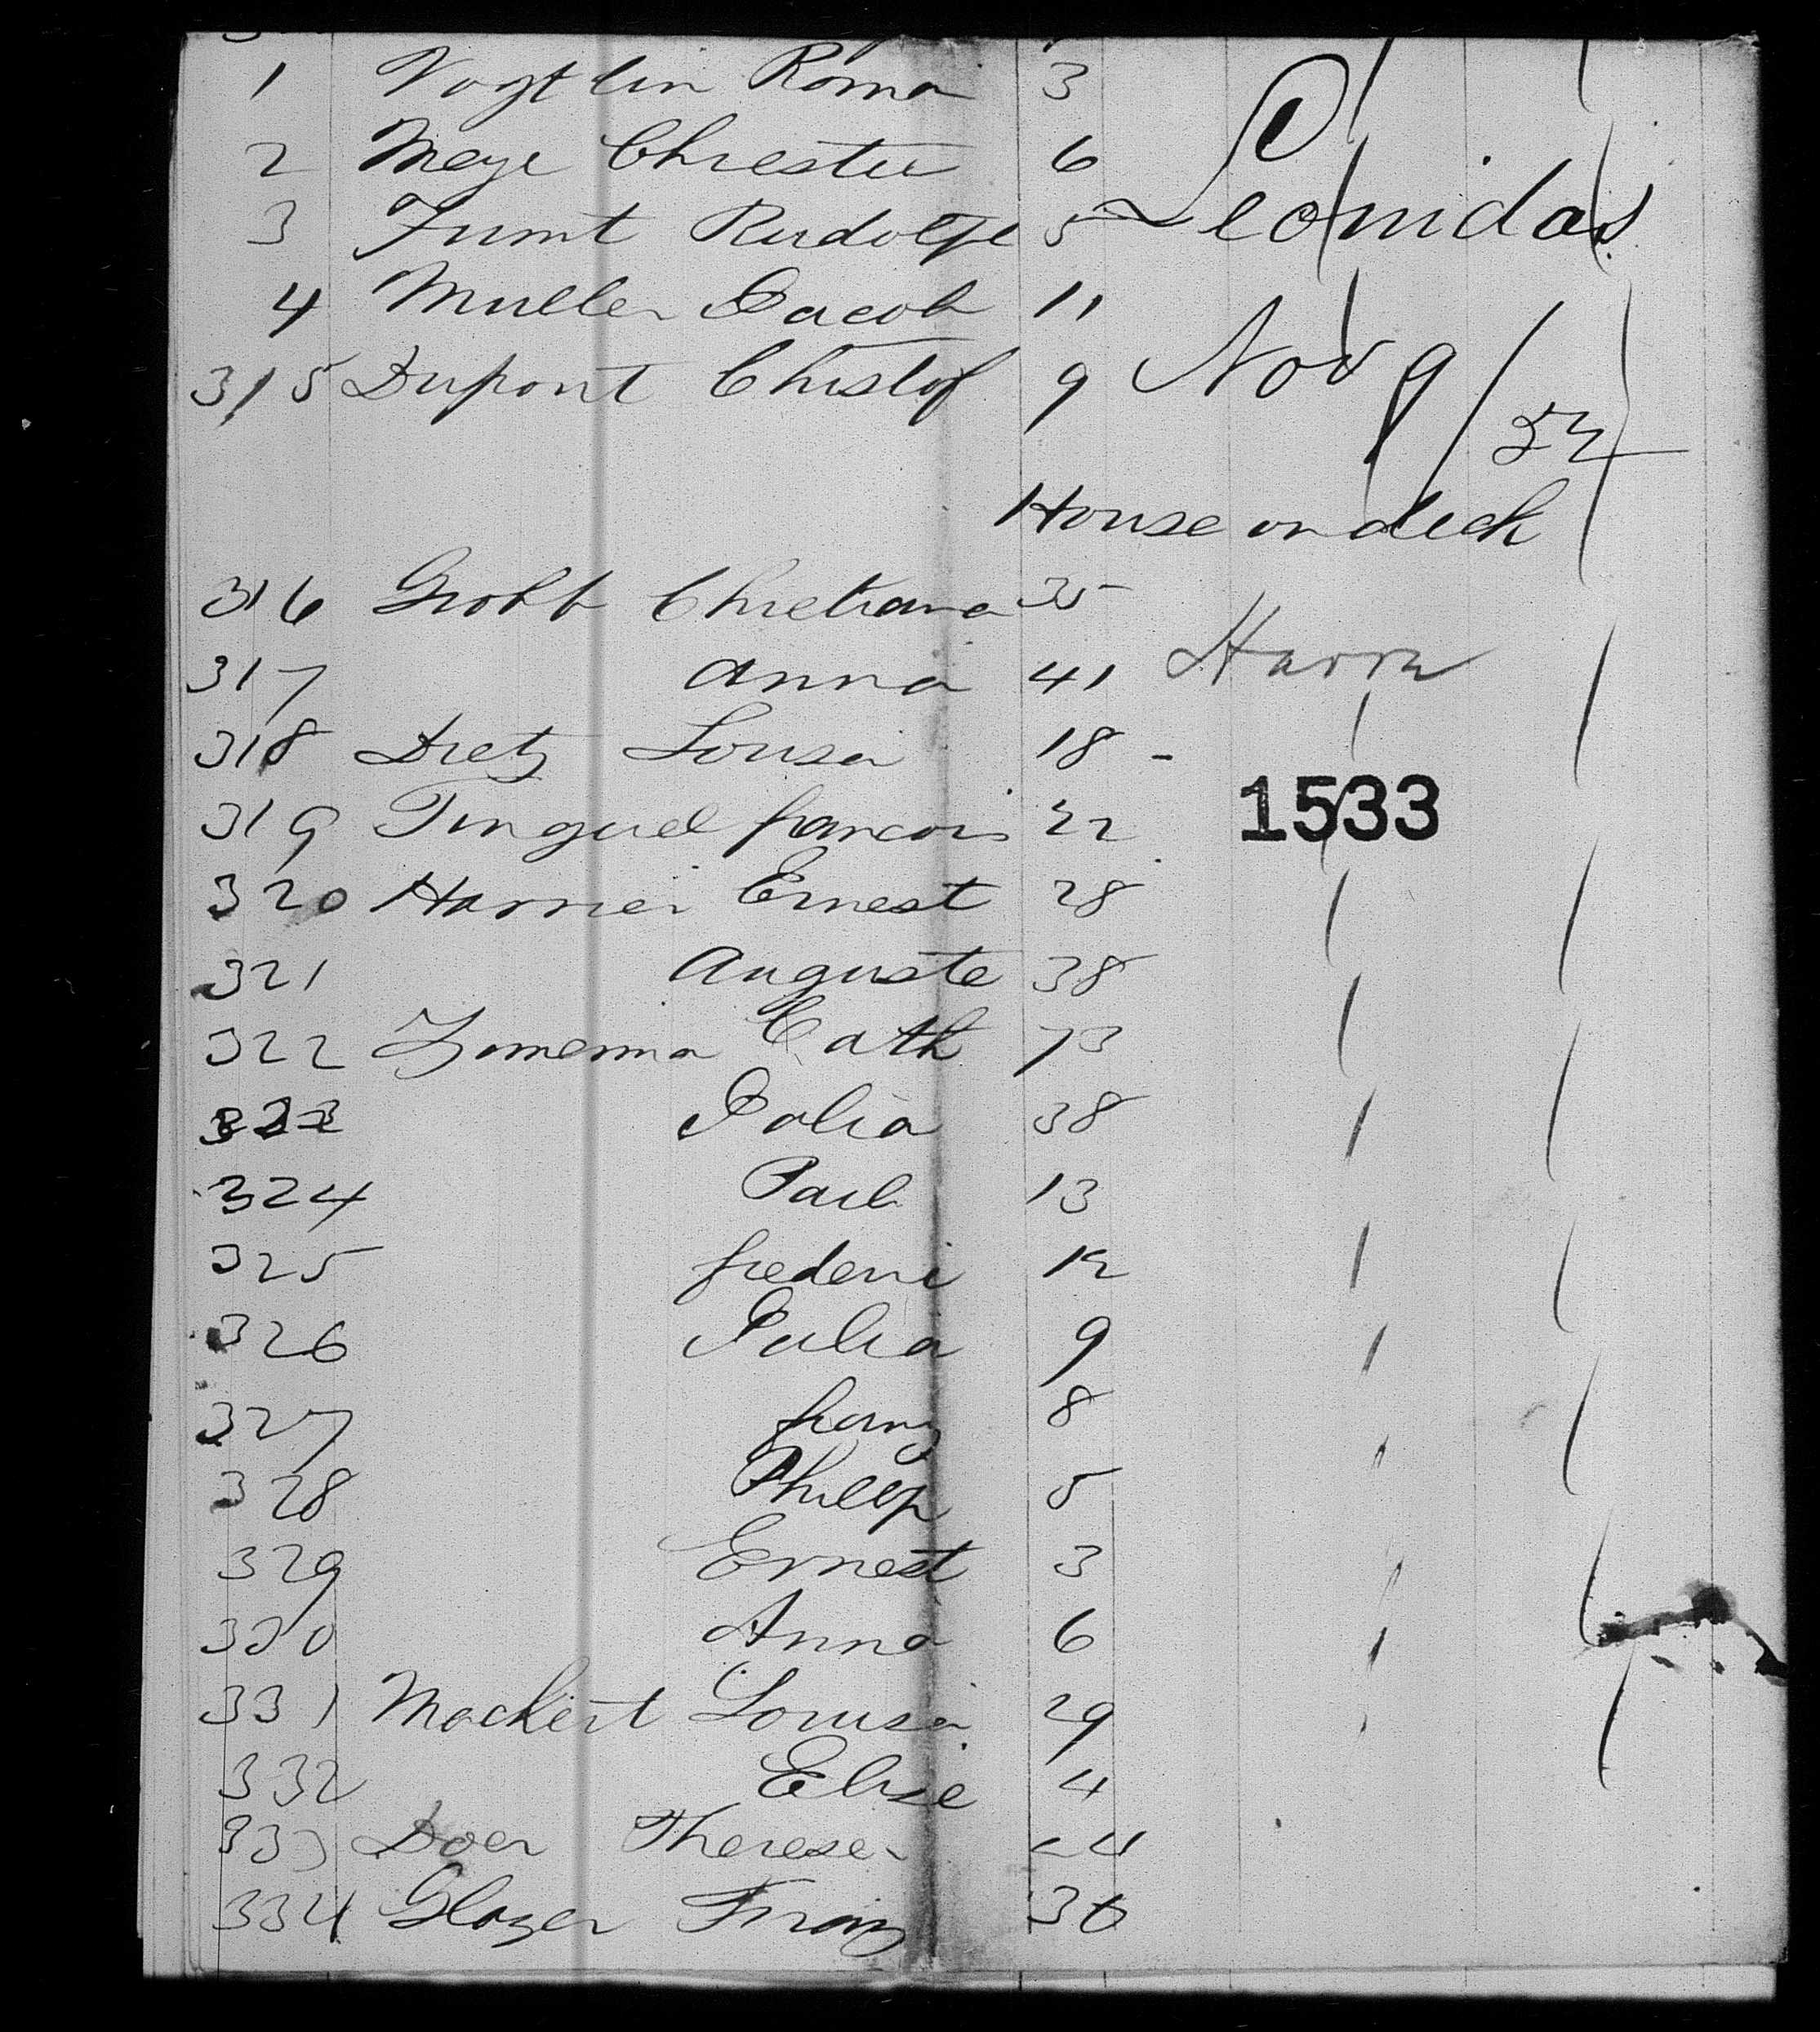 1 Vogtlin Roma 3
2 Meye Chrestie 6
3 Zumt Rudolfe 5 Leonidas
4 Muller Jacob 11
315 Dupont Christof 9 Nov 9/52
House on deck
316 Grobb Chretiana 35
317 Anna 41 Havre
318 Dietz Lousa 18 -
319 Tinguel francois 22 1533
320 Harrier Ernest 28
321 Auguste 38
322 Cath 73
323 Julia 38
324 Paul 13
325 frederic 12
326 Julia 9
327 franz 8
328 Phillip 5
329 Ernest 3
330 Anna 6
331 Mackert Lousa 29
332 Elise 4
333 Doer Therese
334 Glazer Franz 36